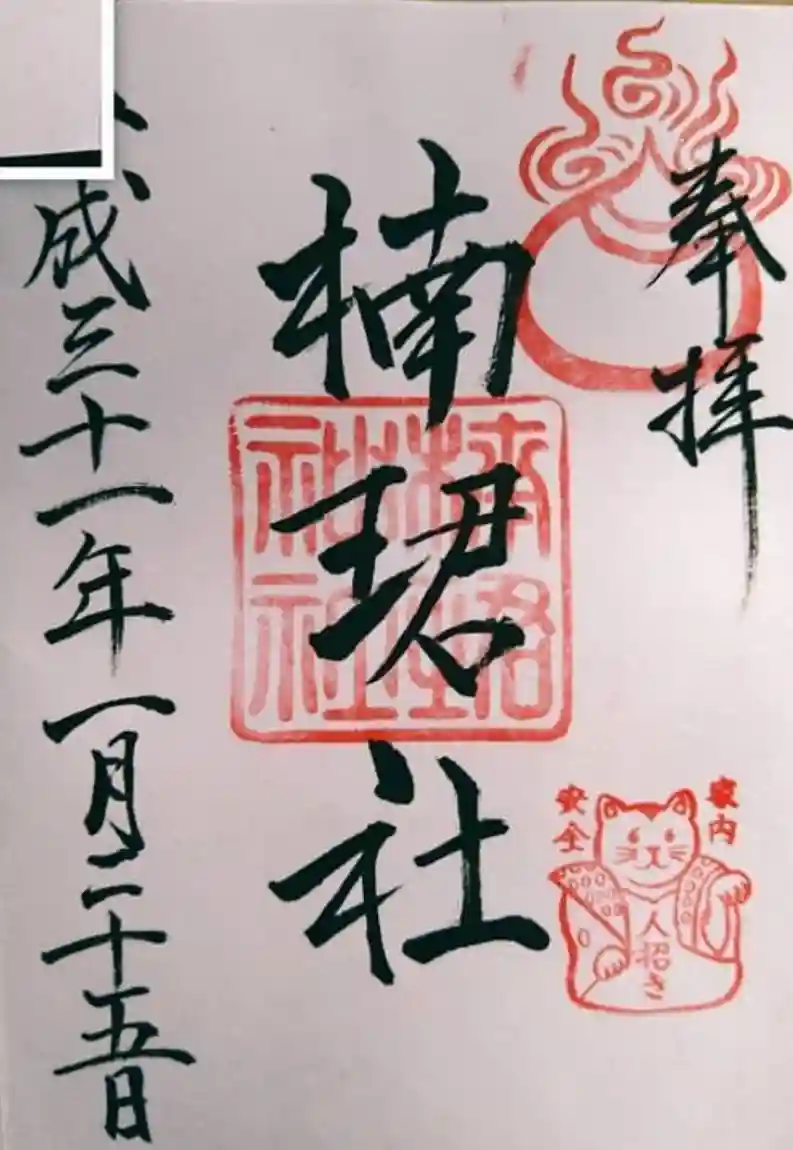 奉拝
楠珺社
成三十一年一月二十五日
家内
安全
人招き